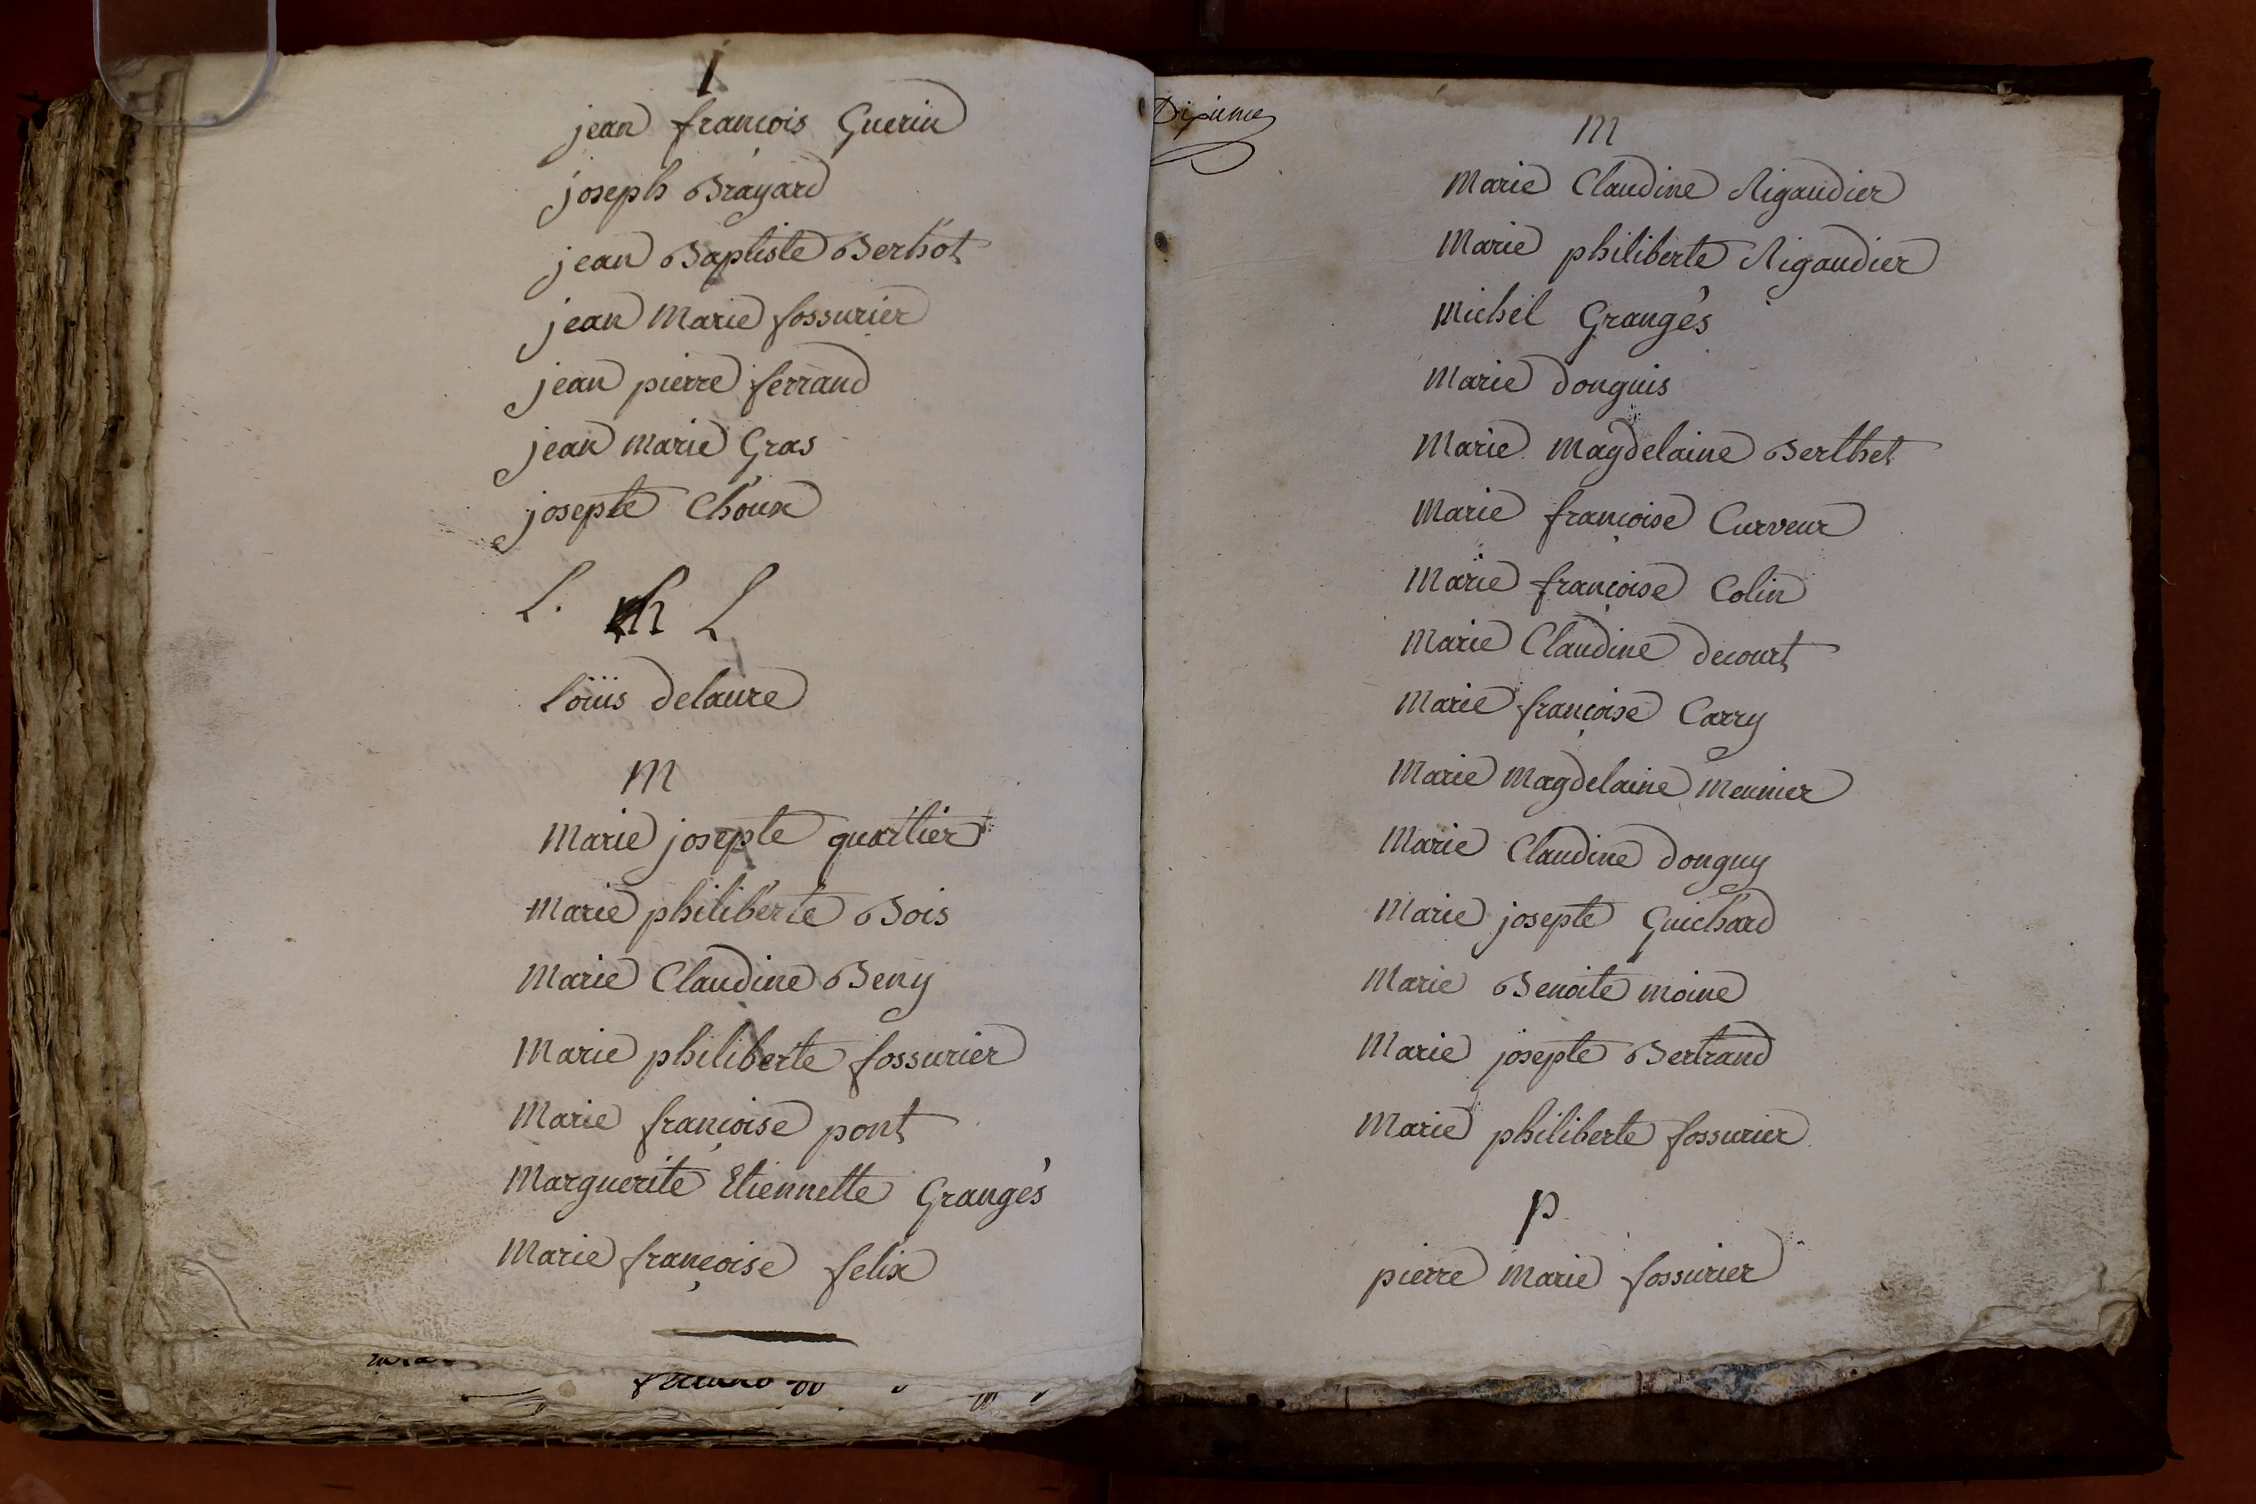 j
jean françois Guerin
joseph Brayard
jean Baptiste Berhot
jean Marie fossurier
jean pierre ferrand
jean marie Gras
josepte Choux
L. L
Loüis delaure
M
Marie josepte quartier
Marie philiberte Bois
Marie Claudine Beny
Marie philiberte fossurier
Marie françoise pont
Marguerite Etiennette Grangés
Marie françoise felix
M
Marie Claudine Rigaudier
Marie philiberte Rigaudier
Michel Grangés
Marie donguis
Marie Magdelaine Berthet
Marie françoise Curveur
Marie françoise Colin
Marie Claudine decourt
Marie françoise Carry
Marie Magdelaine Meunier
Marie Claudine donguy
Marie josepte Guichard
Marie Benoite moine
Marie josepte Bertrand
Marie philiberte fossurier
p
pierre Marie fossurier